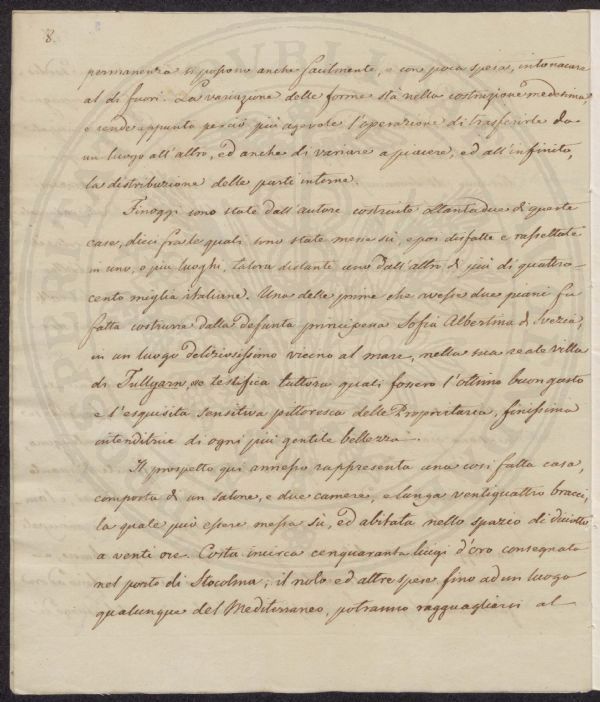 8.
permanenza si possono anche facilmente, e con poca spesa, intonacare
al di fuori. La variazione delle forme stà nella costruzione medesima,
e rende appunto perciò più agevole l'operazione di trasferirle da
un luogo all'altro, ed anche di variare a piacere, ed all'infinito,
la distribuzione delle parti interne.
Finoggi sono state dall'autore costruite ottantadue di queste
case, dieci fra le quali sono state messe sù, e poi disfatte e rassettate
in uno, o più luoghi, talora distanti uno dall'altro di più di quattro-
cento miglia italiane. Una delle prime che avesse due piani fu
fatta costruire dalla defunta principessa Sofia Albertina di Svezia,
in un luogo deliziosissimo vicino al mare, nella sua reale villa
di Tullgarn, e testifica tuttora quali fossero l'ottimo buon gusto
e l'esquisita sensitiva pittoresca della Proprietaria, finissima
intenditrice di ogni più gentile bellezza.
Il prospetto qui annesso rappresenta una così fatta casa,
composta di un salone, e due camere, e lunga ventiquattro bracci,
la quale può essere messa sù, ed abitata nello spazio di diciotto
a venti ore. Costa incirca cenquaranta luigi d'oro consegnata
nel porto di Stocolma; il nolo ed altre spese fino ad un luogo
qualunque del Mediterraneo, potranno ragguagliarsi al